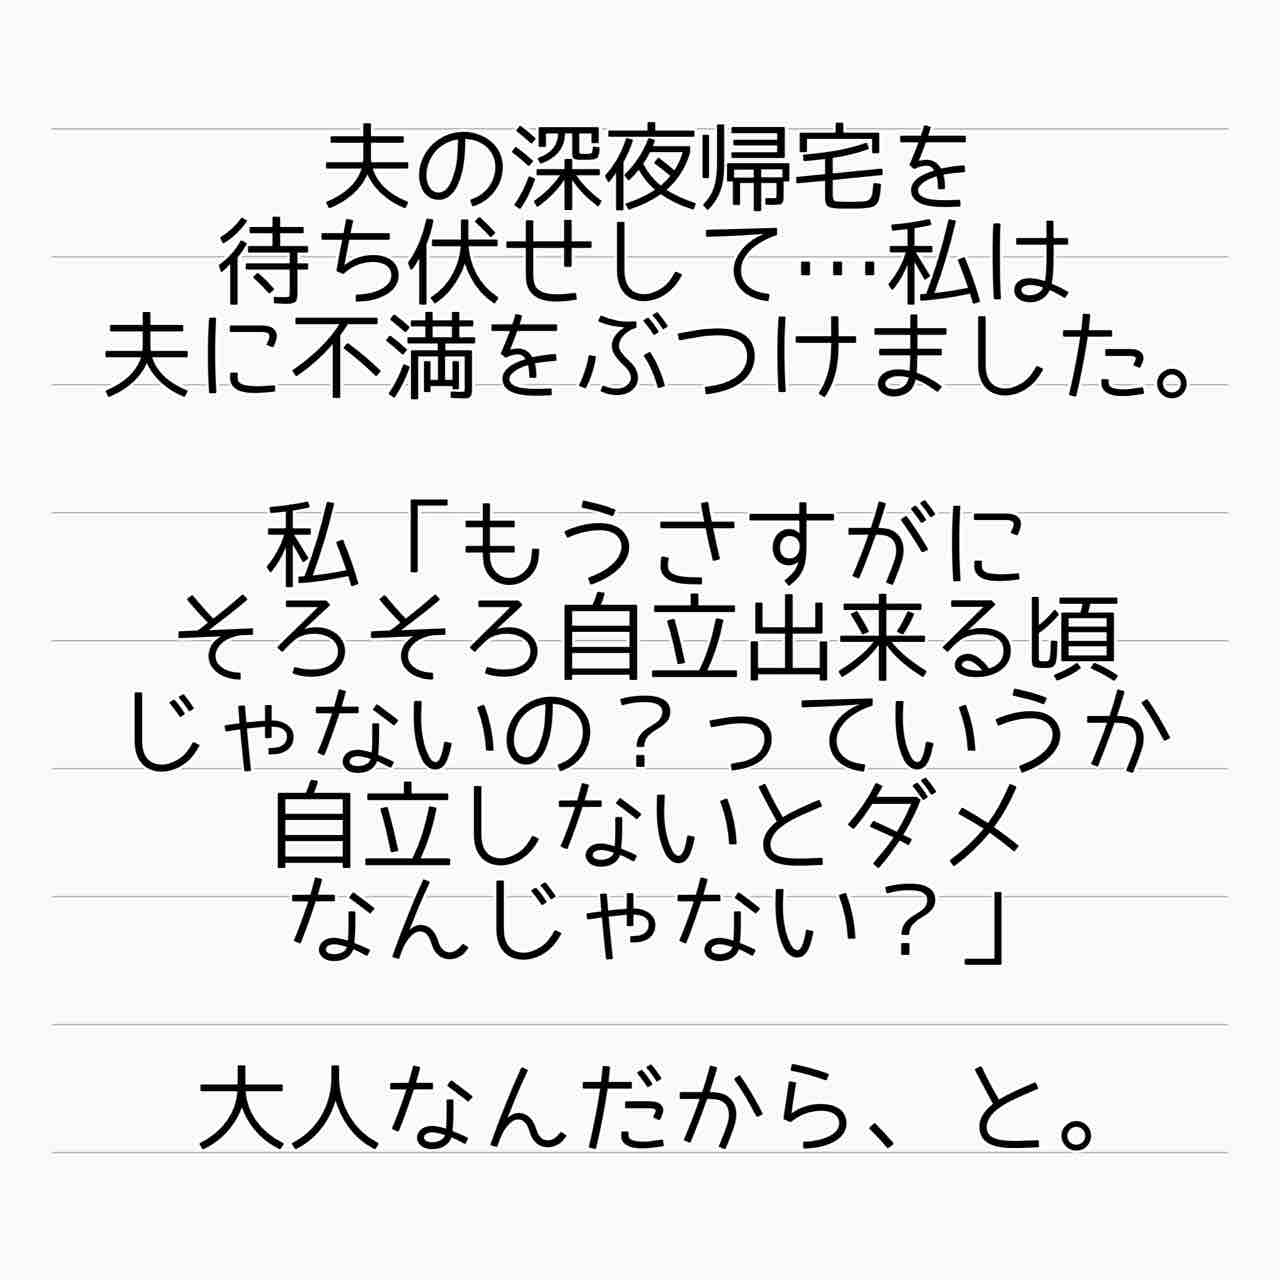 夫の深夜帰宅を
待ち伏せして…私は
夫に不満をぶつけました。
私「もうさすがに
そろそろ自立出来る頃
じゃないの？っていうか
自立しないとダメ
なんじゃない？」
大人なんだから、と。